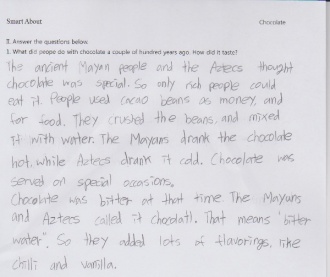 Smart About
Chocolate
T. Answer the questions below.
1. What did people do with chocolate a couple of hundred years ago. How did it taste?
The ancient Mayan people and the Aztecs thought
chocolate was special. So only rich people could
eat it. People used cacao beans as money, and
for food. They crushed the beans, and mixed
it with water. The Mayans drank the chocolate
hot, while Aztecs drank it cold. Chocolate was
served on special occasions.
Chocolate was bitter at that time The Mayans
and Aztecs called it chocolatl. That means "bitter
water". So they added lots of flavorings, like
chilli and vanilla.